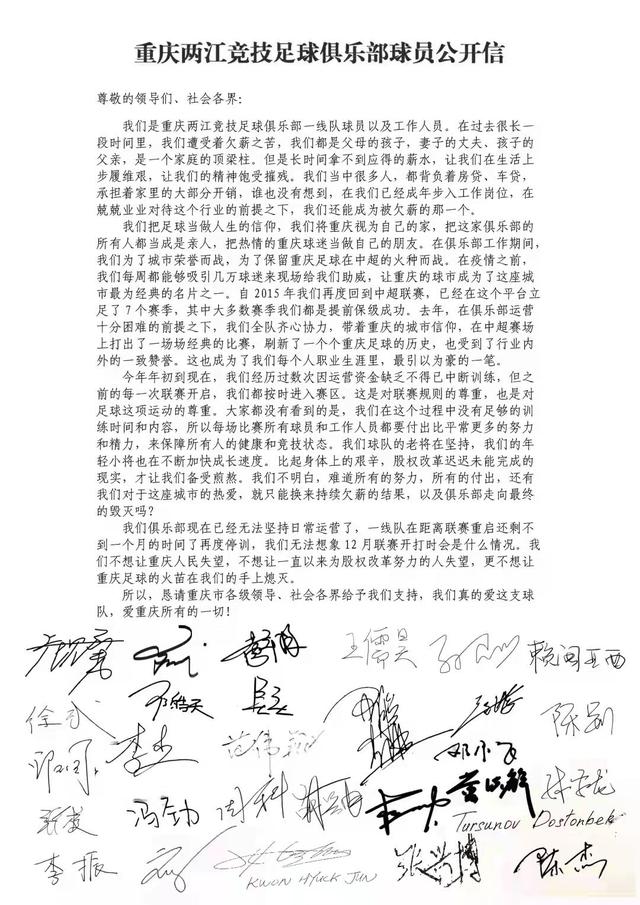 重庆两江竞技足球俱乐部球员公开信
尊敬的领导们、社会各界：
我们是重庆两江竞技足球俱乐部一线队球员以及工作人员。在过去很长一
段时间里，我们遭受着欠薪之苦，我们都是父母的孩子，妻子的丈夫、孩子的
父亲，是一个家庭的顶梁柱。但是长时间拿不到应得的薪水，让我们在生活上
步履维艰，让我们的精神饱受摧残。我们当中很多人，都背负着房贷、车贷，
承担着家里的大部分开销，谁也没有想到，在我们已经成年步入工作岗位，在
兢兢业业对待这个行业的前提之下，我们还能成为被欠薪的那一个。
我们把足球当做人生的信仰，我们将重庆视为自己的家，把这家俱乐部的
所有人都当成是亲人，把热情的重庆球迷当做自己的朋友。在俱乐部工作期间，
我们为了城市荣誉而战，为了保留重庆足球在中超的火种而战。在疫情之前，
我们每周都能够吸引几万球迷来现场给我们助威，让重庆的球市成为了这座城
市最为经典的名片之一。自 2015 年我们再度回到中超联赛，已经在这个平台立
足了 7 个赛季，其中大多数赛季我们都是提前保级成功。去年，在俱乐部运营
十分困难的前提之下，我们全队齐心协力，带着重庆的城市信仰，在中超赛场
上打出了一场场经典的比赛，刷新了一个个重庆足球的历史，也受到了行业内
外的一致赞誉。这也成为了我们每个人职业生涯里，最引以为豪的一笔。
今年年初到现在，我们经历过数次因运营资金缺乏不得已中断训练，但之
前的每一次联赛开启，我们都按时进入赛区。这是对联赛规则的尊重，也是对
足球这项运动的尊重。大家都没有看到的是，我们在这个过程中没有足够的训
练时间和内容，所以每场比赛所有球员和工作人员都要付出比平常更多的努力
和精力，来保障所有人的健康和竞技状态。我们球队的老将在坚持，我们的年
轻小将也在不断加快成长速度。比起身体上的艰辛，股权改革迟迟未能完成的
现实，才让我们备受煎熬。我们不明白，难道所有的努力，所有的付出，还有
我们对于这座城市的热爱，就只能换来持续欠薪的结果，以及俱乐部走向最终
的毁灭吗？
我们俱乐部现在已经无法坚持日常运营了，一线队在距离联赛重启还剩不
到一个月的时间了再度停训，我们无法想象 12 月联赛开打时会是什么情况。我
们不想让重庆人民失望，不想让一直以来为股权改革努力的人失望，更不想让
重庆足球的火苗在我们的手上熄灭。
所以，恳请重庆市各级领导、社会各界给予我们支持，我们真的爱这支球
队，爱重庆所有的一切！
王儒昊
邓小飞
冯劲 周科 Tursunov Dostonbek
李振 KWON HYUCK JUN 陈杰